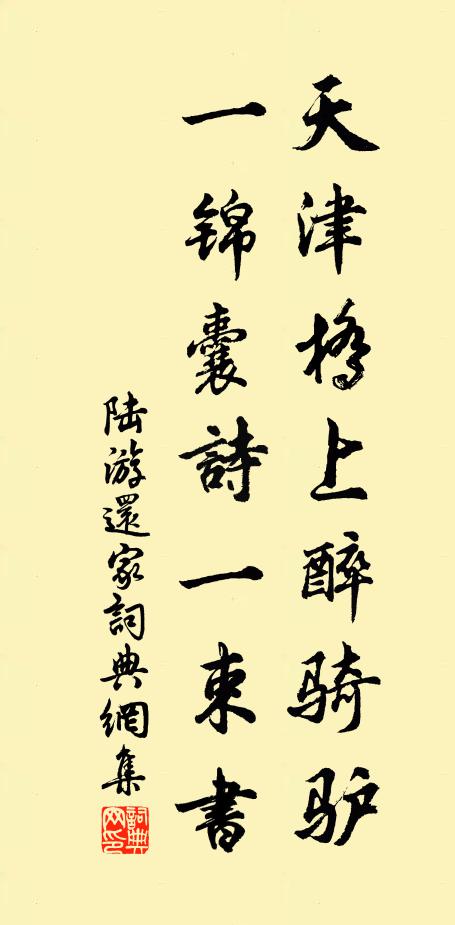 天津橋上醉骑驴
一锦囊詩一束書
陆游還家詞典網集
詞典网印